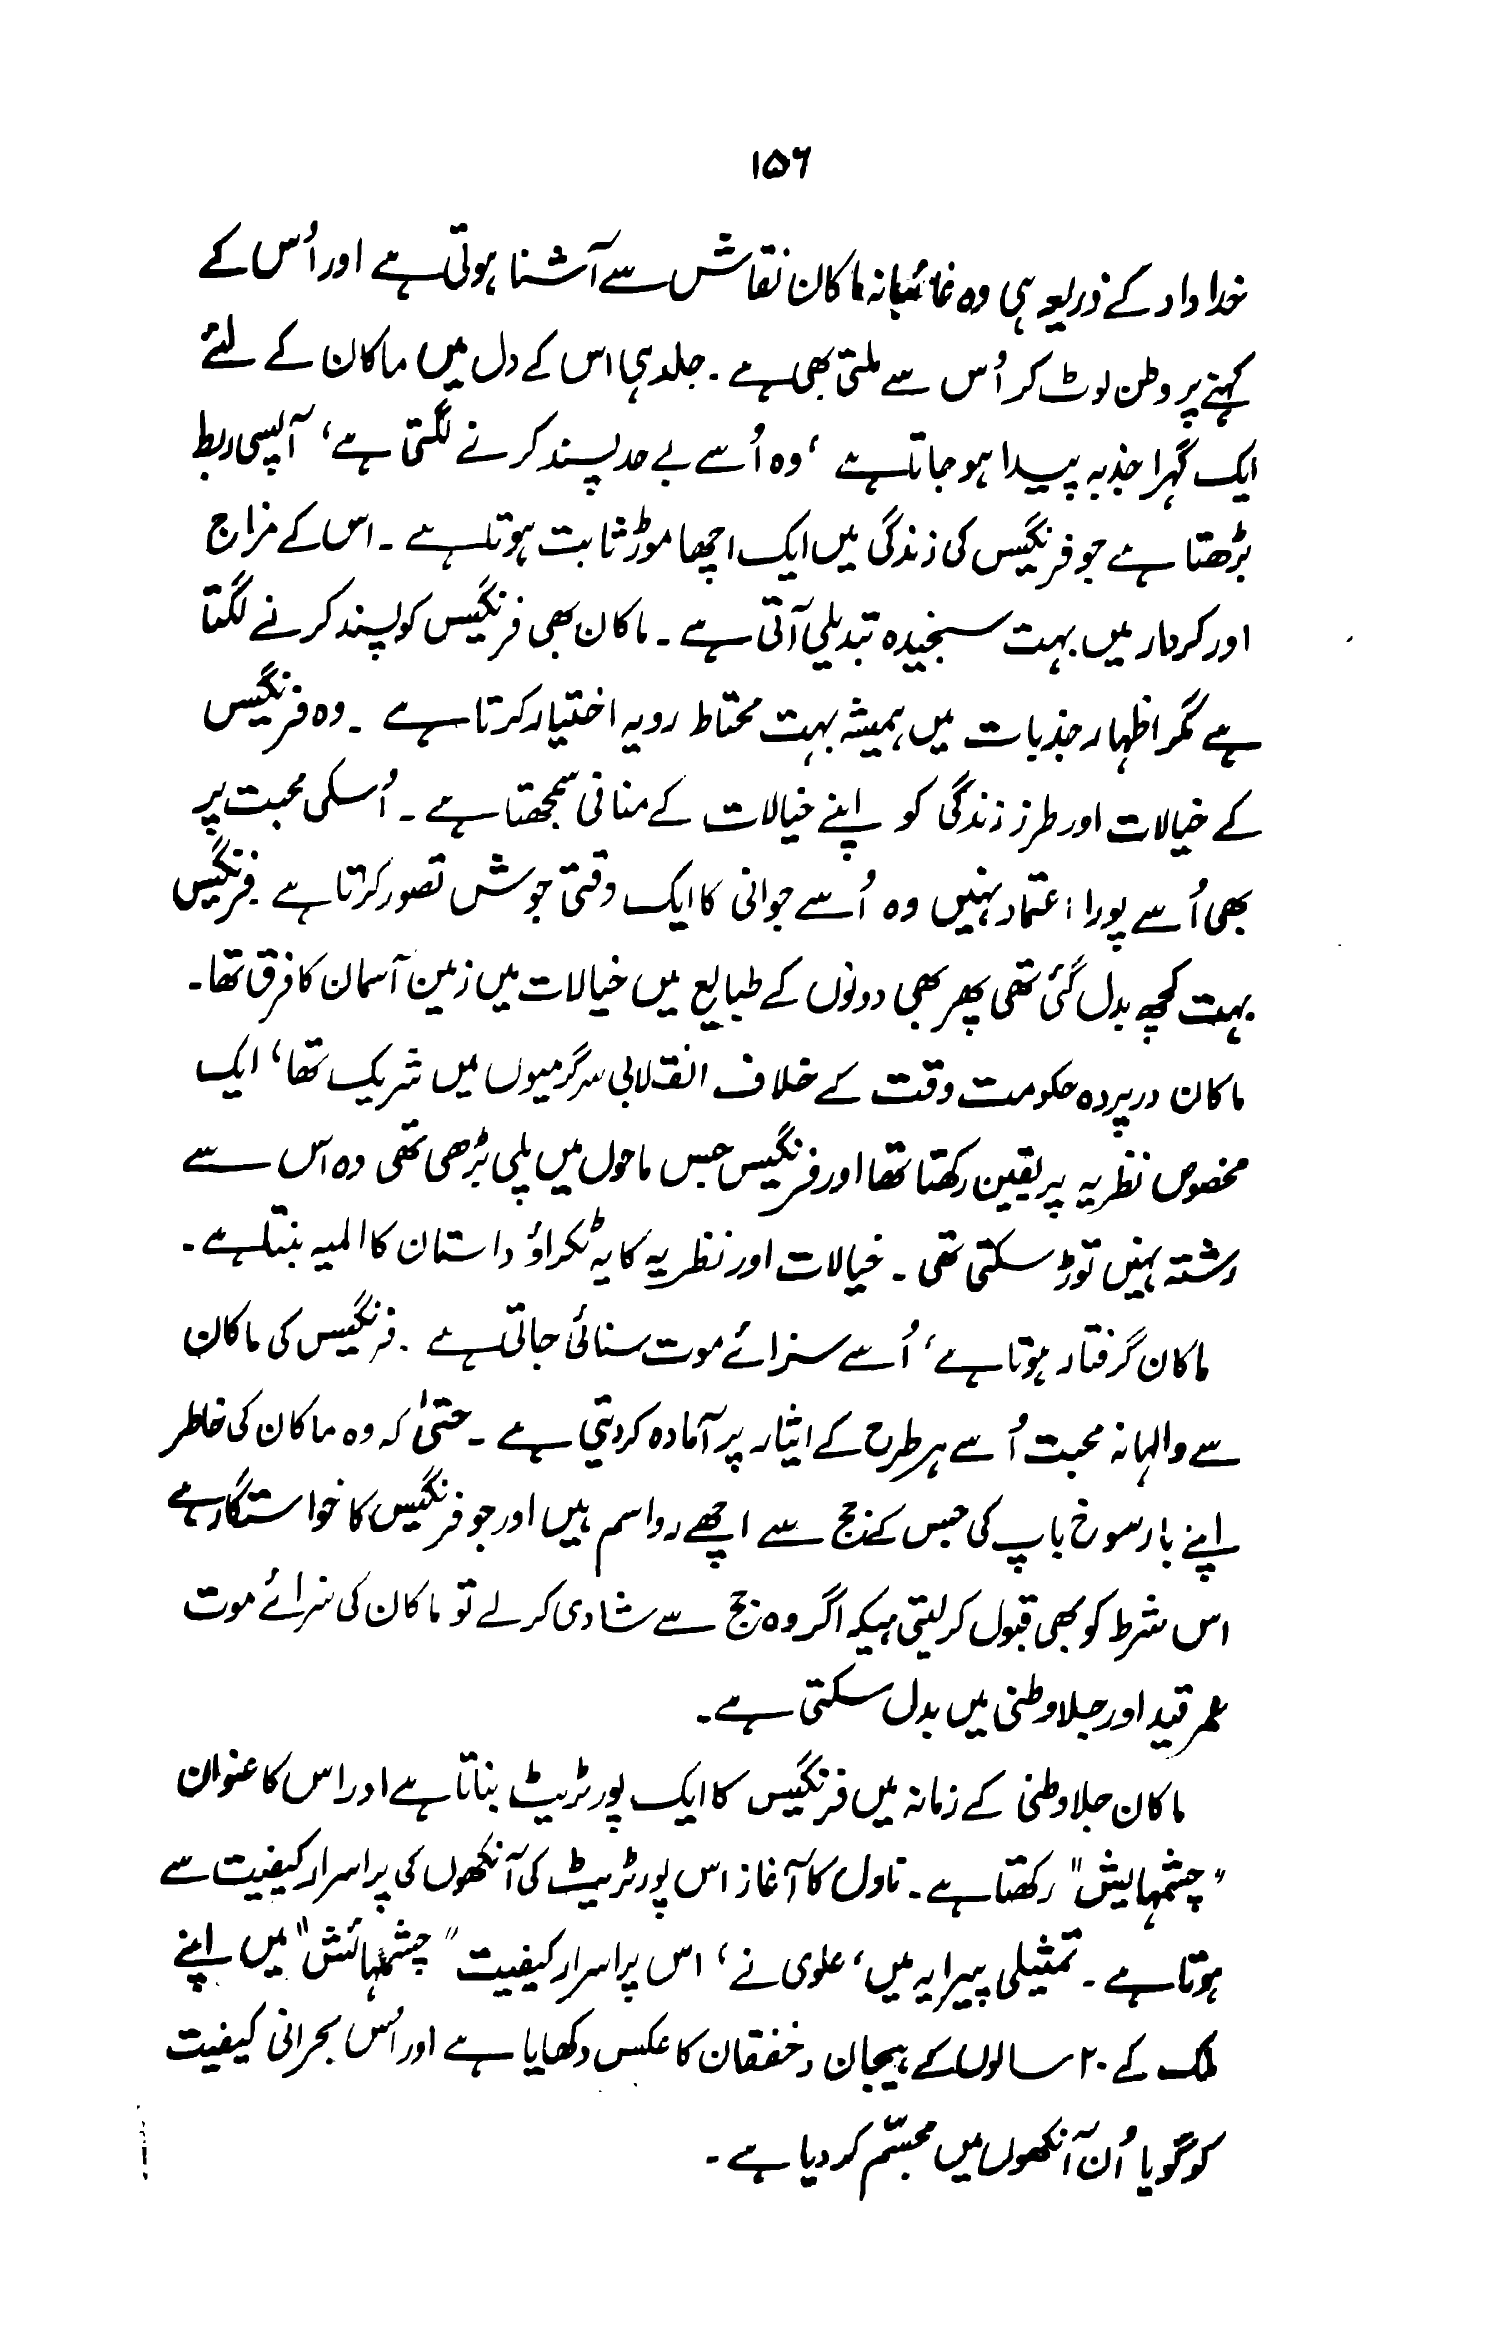 ۱۵۶
خدا داد کے ذریعہ ہی وہ غائبانہ ماکان نقاش سے آشنا ہوتی ہے اور اُس کے
کہنے پر وطن لوٹ کر اُس سے ملتی بھی ہے ۔ جلد ہی اس کے دل میں ماکان کے لئے
ایک گہرا جذبہ پیدا ہو جاتا ہے ، وہ اُسے بے حد پسند کرنے لگتی ہے ، آپسی ربط
بڑھتا ہے جو فرنگیس کی زندگی میں ایک اچھا موڑ ثابت ہوتا ہے ۔ اس کے مزاج
اور کردار میں بہت سنجیدہ تبدیلی آتی ہے ۔ ماکان بھی فرنگیس کو پسند کرنے لگتا
ہے مگر اظہار جذبات میں ہمیشہ بہت محتاط رویہ اختیار کرتا ہے ۔ وہ فرنگیس
کے خیالات اور طرز زندگی کو اپنے خیالات کے منافی سمجھتا ہے ۔ اُسکی محبت پر
بھی اُسے پورا اعتماد نہیں وہ اُسے جوانی کا ایک وقتی جوش تصور کرتا ہے ۔ فرنگیس
بہت کچھ بدل گئی تھی پھر بھی دونوں کے طبایع میں خیالات میں زمین آسمان کا فرق تھا ۔
ماکان درپردہ حکومت وقت کے خلاف انقلابی سرگرمیوں میں شریک تھا ، ایک
مخصوص نظریہ پر یقین رکھتا تھا اور فرنگیس جس ماحول میں پلی بڑھی تھی وہ اس سے
رشتہ نہیں توڑ سکتی تھی ۔ خیالات اور نظریہ کا یہ ٹکراؤ داستان کا المیہ بنتا ہے ۔
ماکان گرفتار ہوتا ہے ، اُسے سزائے موت سنائی جاتی ہے ۔ فرنگیس کی ماکان
سے والہانہ محبت اُسے ہر طرح کے ایثار پر آمادہ کر دیتی ہے ۔ حتیٰ کہ وہ ماکان کی خاطر
اپنے با رسوخ باپ کی جس کے جج سے اچھے رواسم ہیں اور جو فرنگیس کا خواستگار ہے
اس شرط کو بھی قبول کر لیتی ہیکہ اگر وہ جج سے شادی کر لے تو ماکان کی سزائے موت
عمر قید اور جلا وطنی میں بدل سکتی ہے ۔
ماکان جلا وطنی کے زمانہ میں فرنگیس کا ایک پورٹریٹ بناتا ہے اور اس کا عنوان
"چشمہایش" رکھتا ہے ۔ ناول کا آغاز اس پورٹریٹ کی آنکھوں کی پراسرار کیفیت سے
ہوتا ہے ۔ تمثیلی پیرایہ میں ، علوی نے ، اس پراسرار کیفیت "چشمہائش" میں اپنے
ملک کے ۲۰ سالوں کے ہیجان و خفقان کا عکس دکھایا ہے اور اُس بحرانی کیفیت
کو گویا اُن آنکھوں میں مجسّم کر دیا ہے ۔